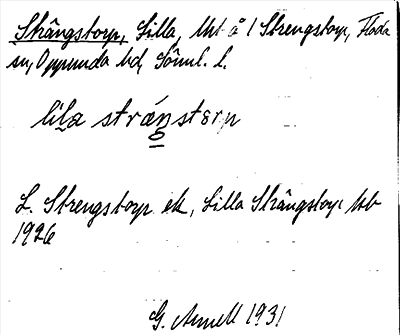 Strängstorp, Lilla, Utt å 1 Strengstorp, Floda
sn, Oppunda hd, Söml. l.
lila strǽŋstɔrp
L. Strengstorp ek, Lilla Strängstorp Utb
1926
G. Arnell 1931